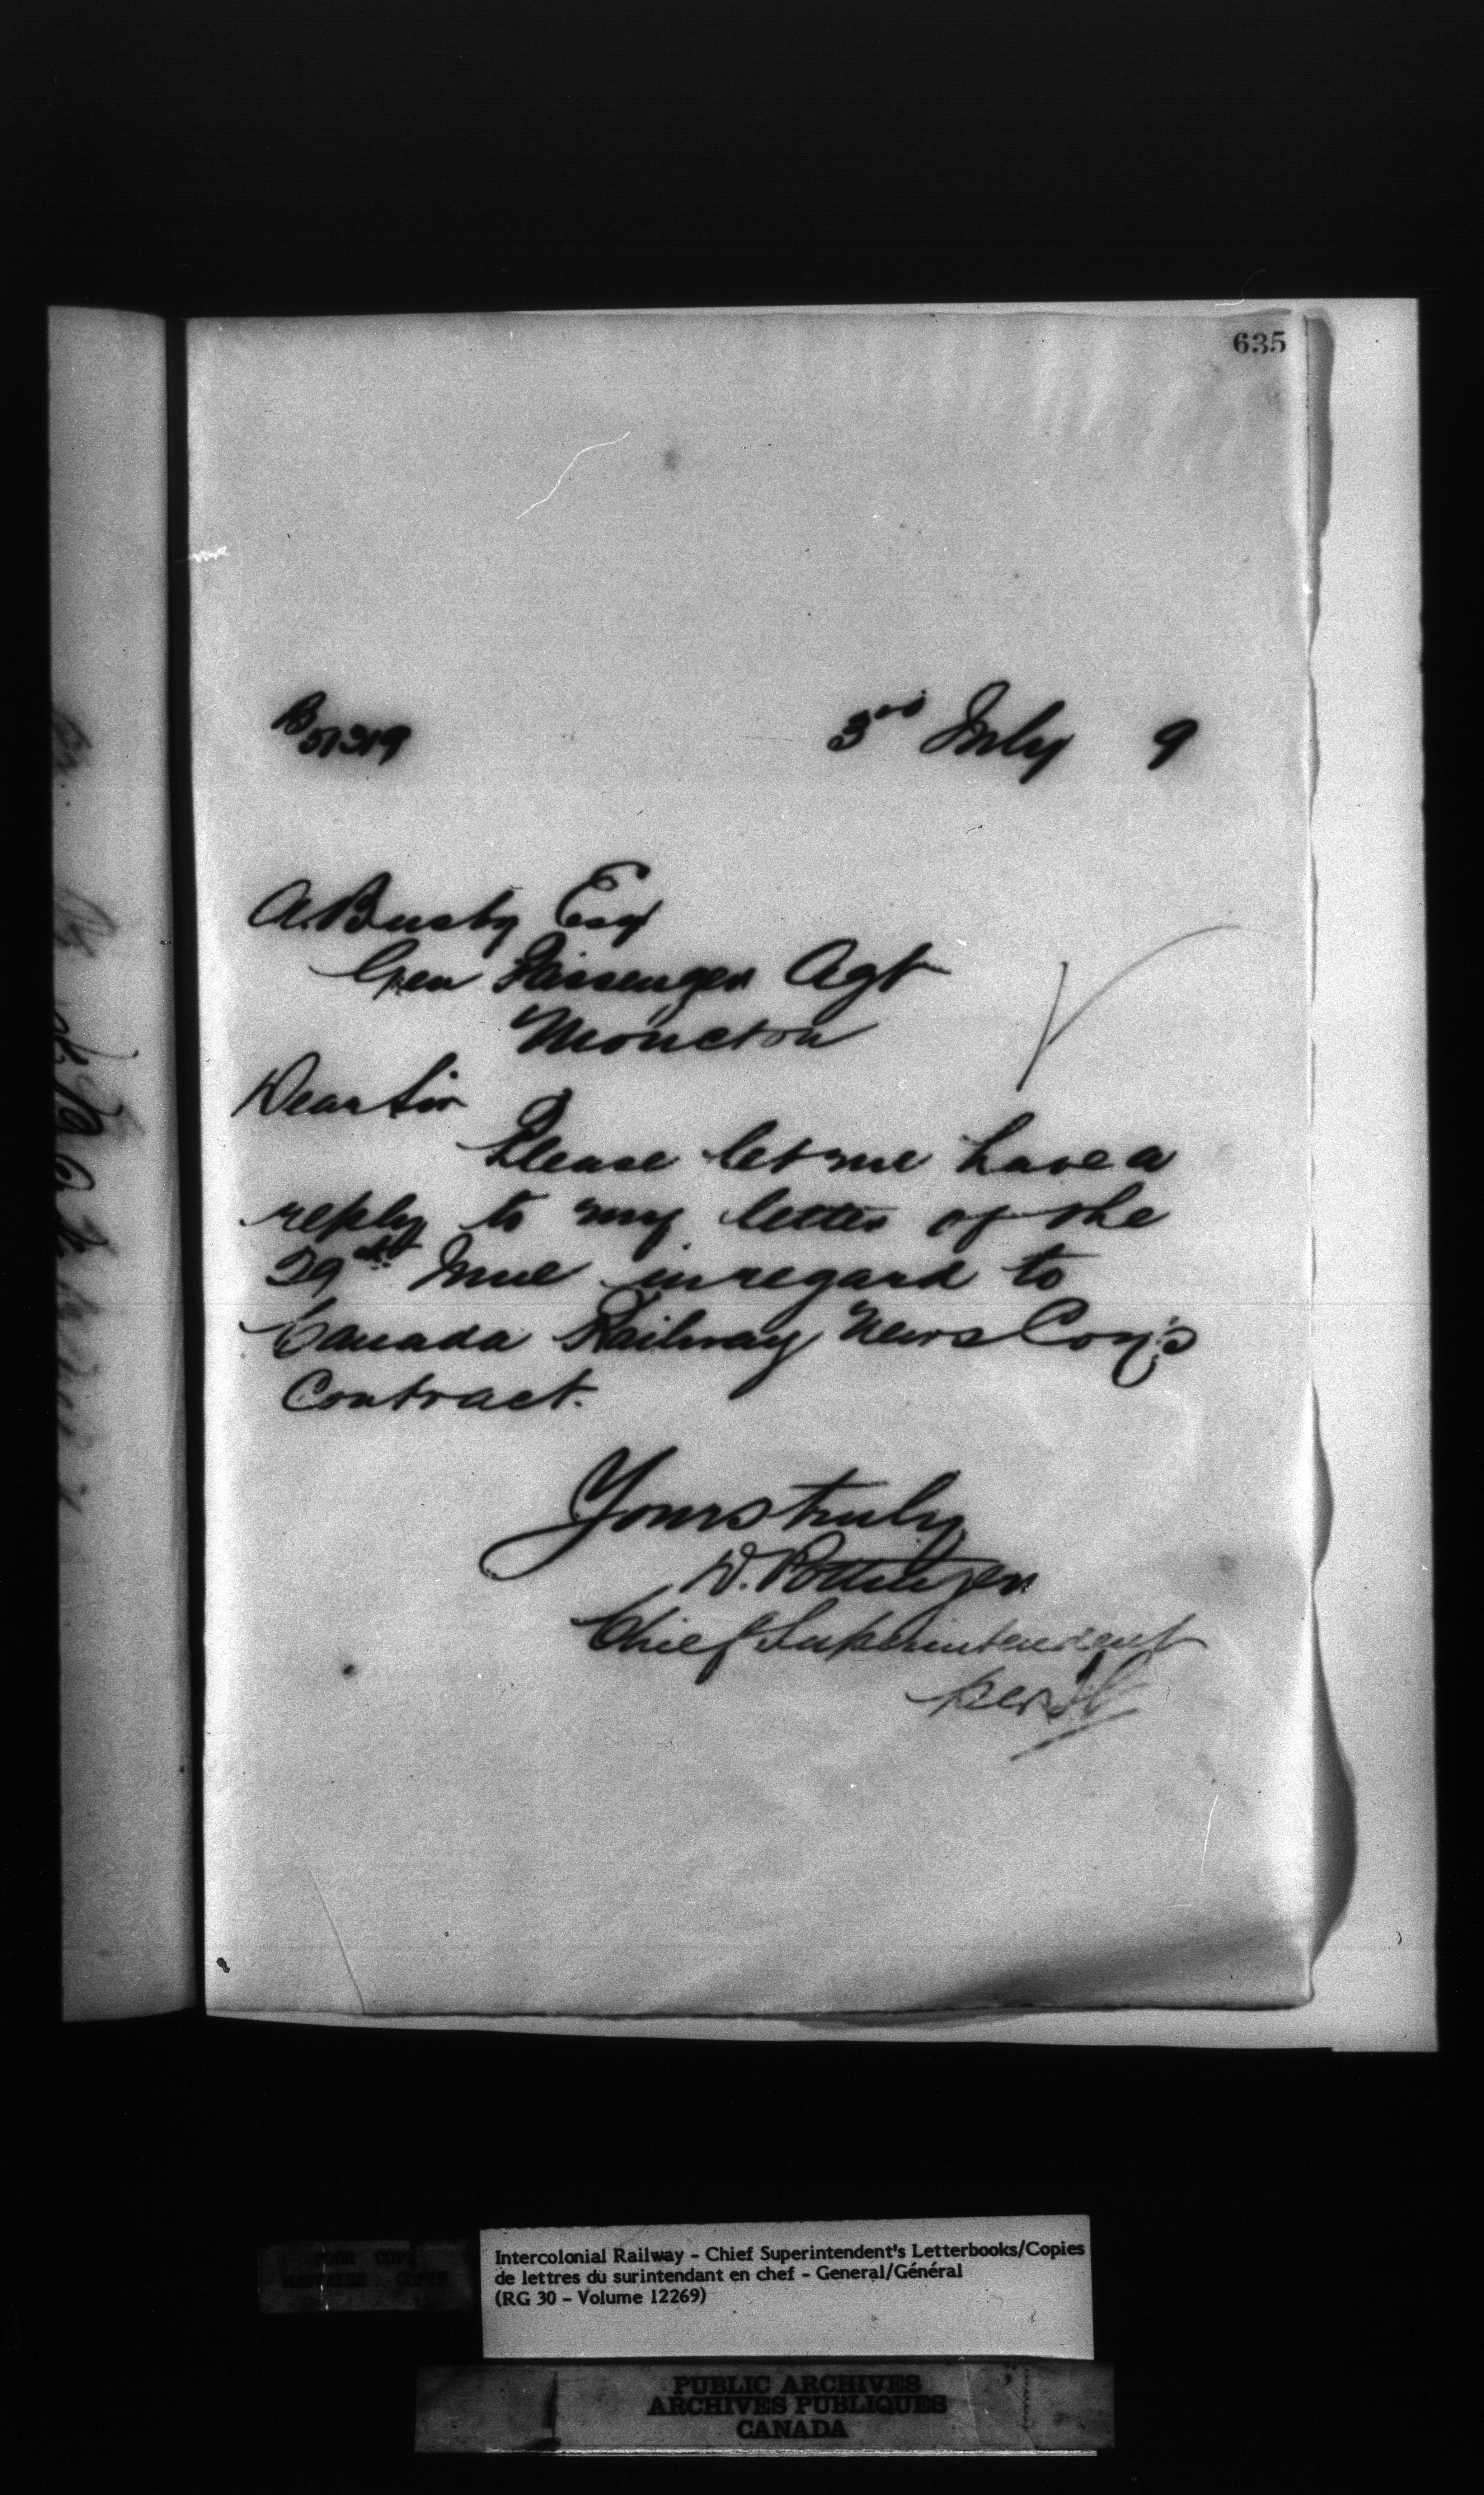 635
B51319
3rd July 9
A. Busby Esq
Gen Passenger Agt
Moncton
Dear Sir
Please let me have a
reply to my letter of the
29th June in regard to
Canada Railway News Coy's
Contract.
Yours truly
D. Pottinger
Chief Superintendent
per
POOR COPY
MAUVAISE COPIE
Intercolonial Railway - Chief Superintendent's Letterbooks/Copies
de lettres du surintendant en chef - General/Général
(RG 30 - Volume 12269)
PUBLIC ARCHIVES
ARCHIVES PUBLIQUES
CANADA